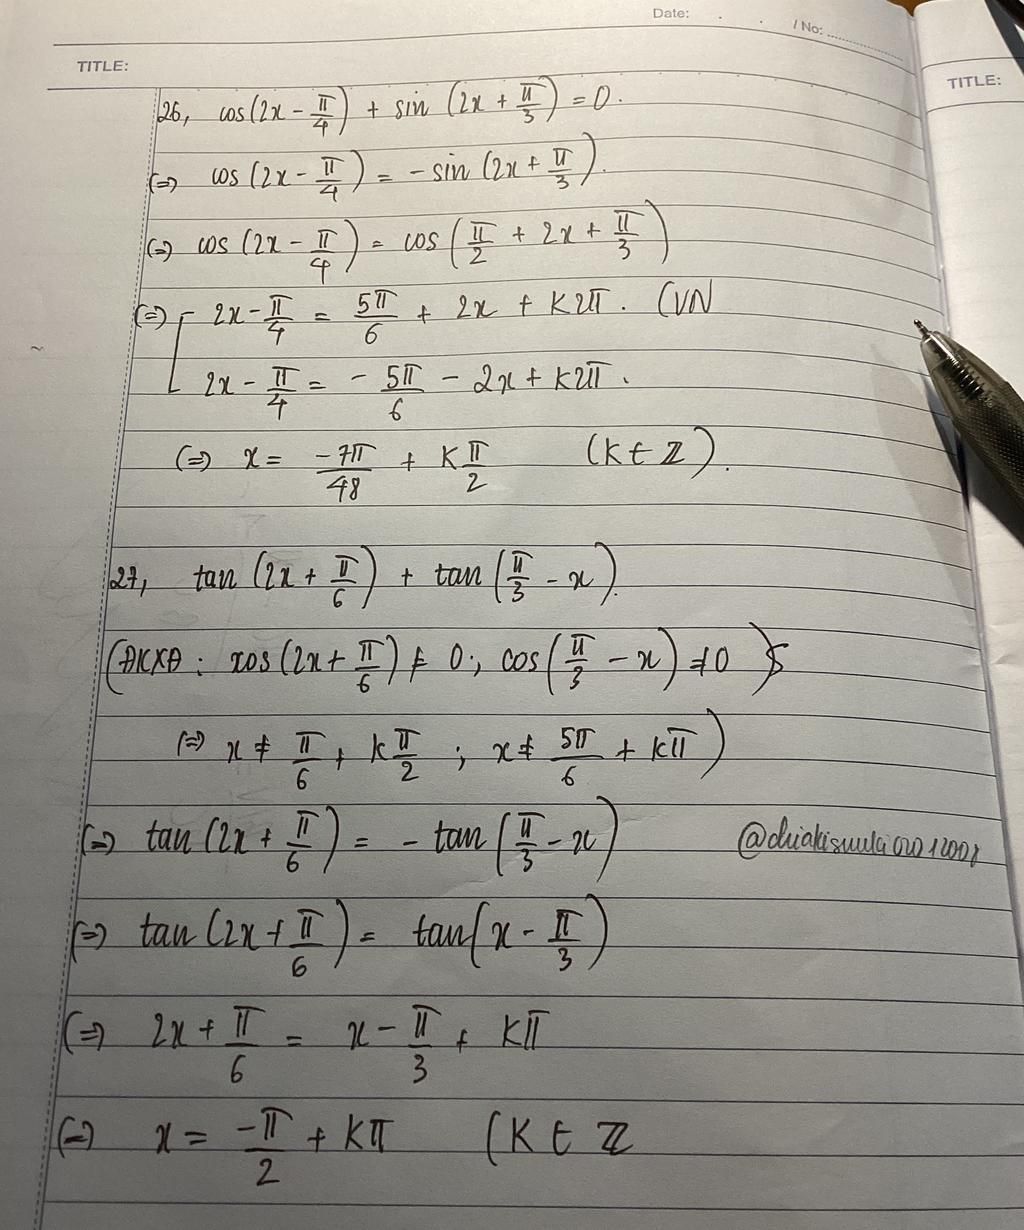 Date: . . / No:
TITLE:
TITLE:
26, cos(2x - π/4) + sin (2x + π/3) = 0.
(=) cos (2x - π/4) = - sin (2x + π/3).
(=) cos (2x - π/4) = cos (π/2 + 2x + π/3)
(=) [ 2x - π/4 = 5π/6 + 2x + K2π. (VN
2x - π/4 = - 5π/6 - 2x + K2π.
(=) x = -7π/48 + K π/2 (K ∈ Z).
27, tan (2x + π/6) + tan (π/3 - x).
(ĐKXĐ : cos (2x + π/6) ≠ 0 ; cos (π/3 - x) ≠ 0
(=) x ≠ π/6 + k π/2 ; x ≠ 5π/6 + kπ )
(=) tan (2x + π/6) = - tan (π/3 - x)
(=) tan (2x + π/6) = tan (x - π/3)
(=) 2x + π/6 = x - π/3 + Kπ
(=) x = -π/2 + Kπ (K ∈ Z